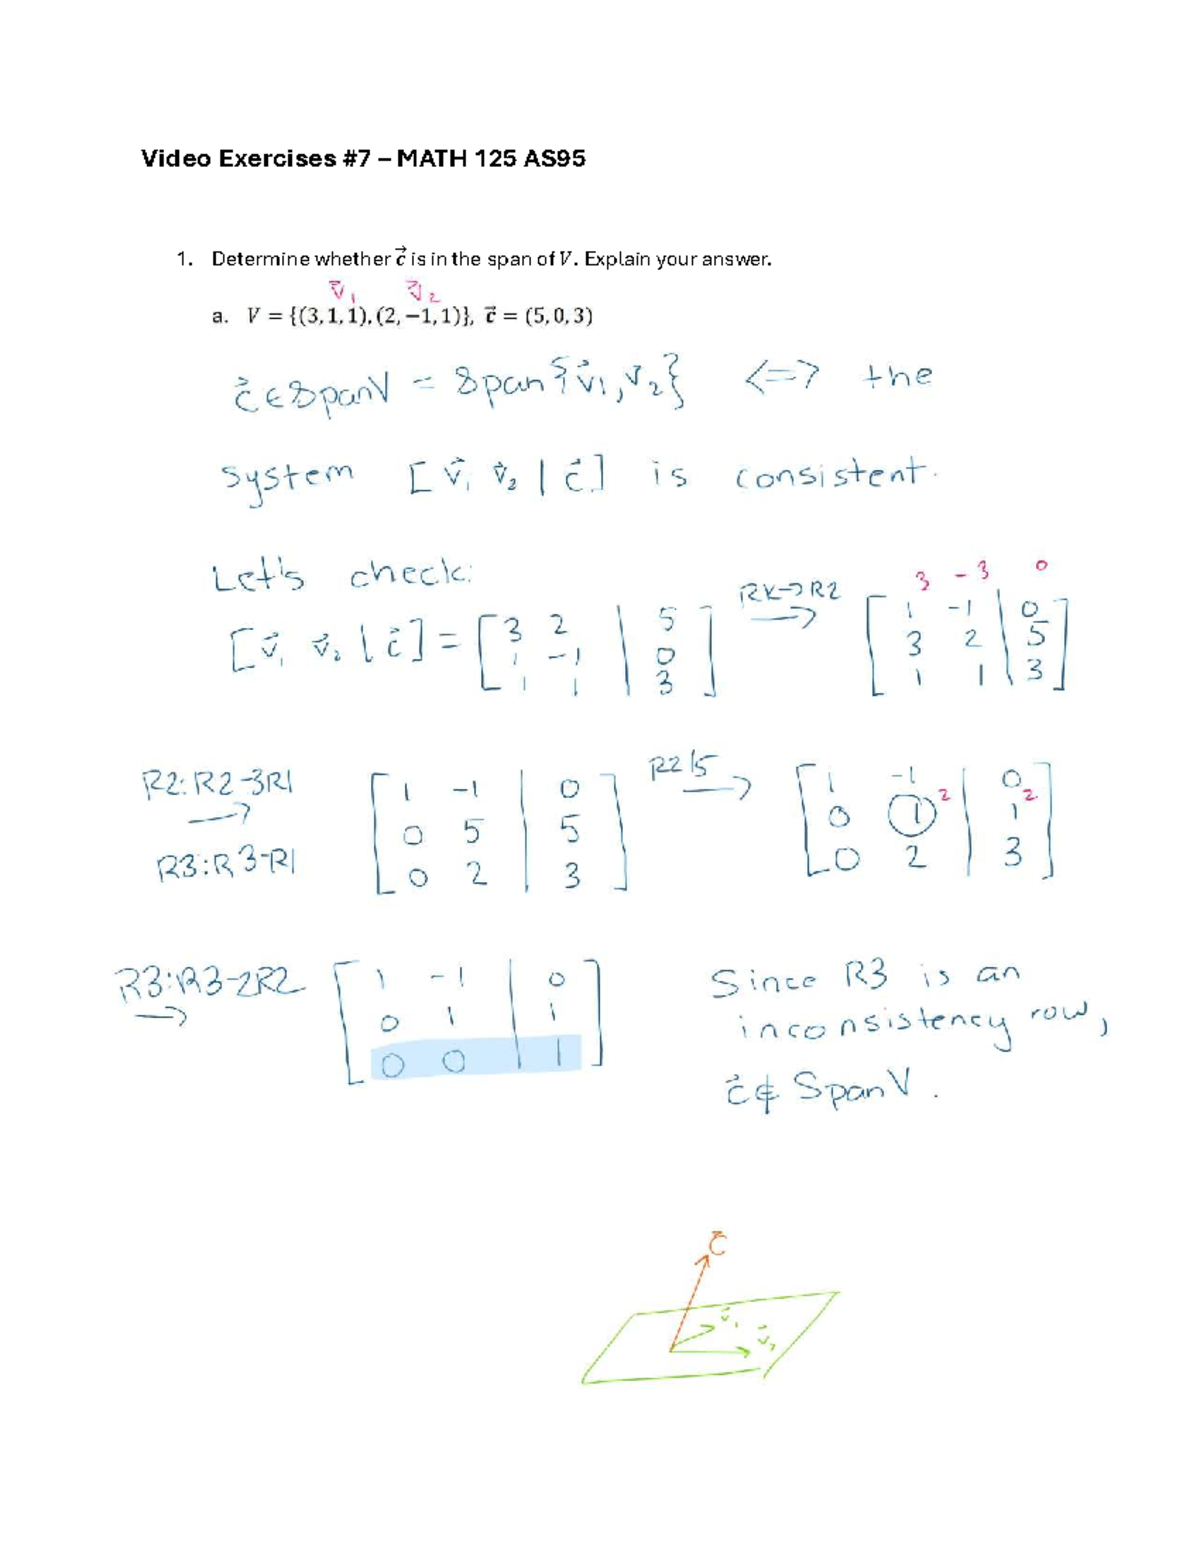 Video Exercises #7 – MATH 125 AS95
1. Determine whether c⃗ is in the span of V. Explain your answer.
v⃗₁ v⃗₂
a. V = {(3, 1, 1), (2, −1, 1)}, c⃗ = (5, 0, 3)
c⃗ ∈ Span V = Span {v⃗₁, v⃗₂} <=> the
system [v⃗₁ v⃗₂ | c⃗] is consistent.
Let's check:
3 -3 0
[v⃗₁ v⃗₂ | c⃗] = [3 2 | 5; 1 -1 | 0; 1 1 | 3] R1<->R2 → [1 -1 | 0; 3 2 | 5; 1 1 | 3]
R2: R2-3R1 → R3: R3-R1 [1 -1 | 0; 0 5 | 5; 0 2 | 3] R2/5 → [1 -1 | 0; 0 1 | 1; 0 2 | 3]
2 2
R3: R3-2R2 → [1 -1 | 0; 0 1 | 1; 0 0 | 1]
Since R3 is an
inconsistency row,
c⃗ ∉ Span V.
c⃗
v⃗₁
v⃗₂